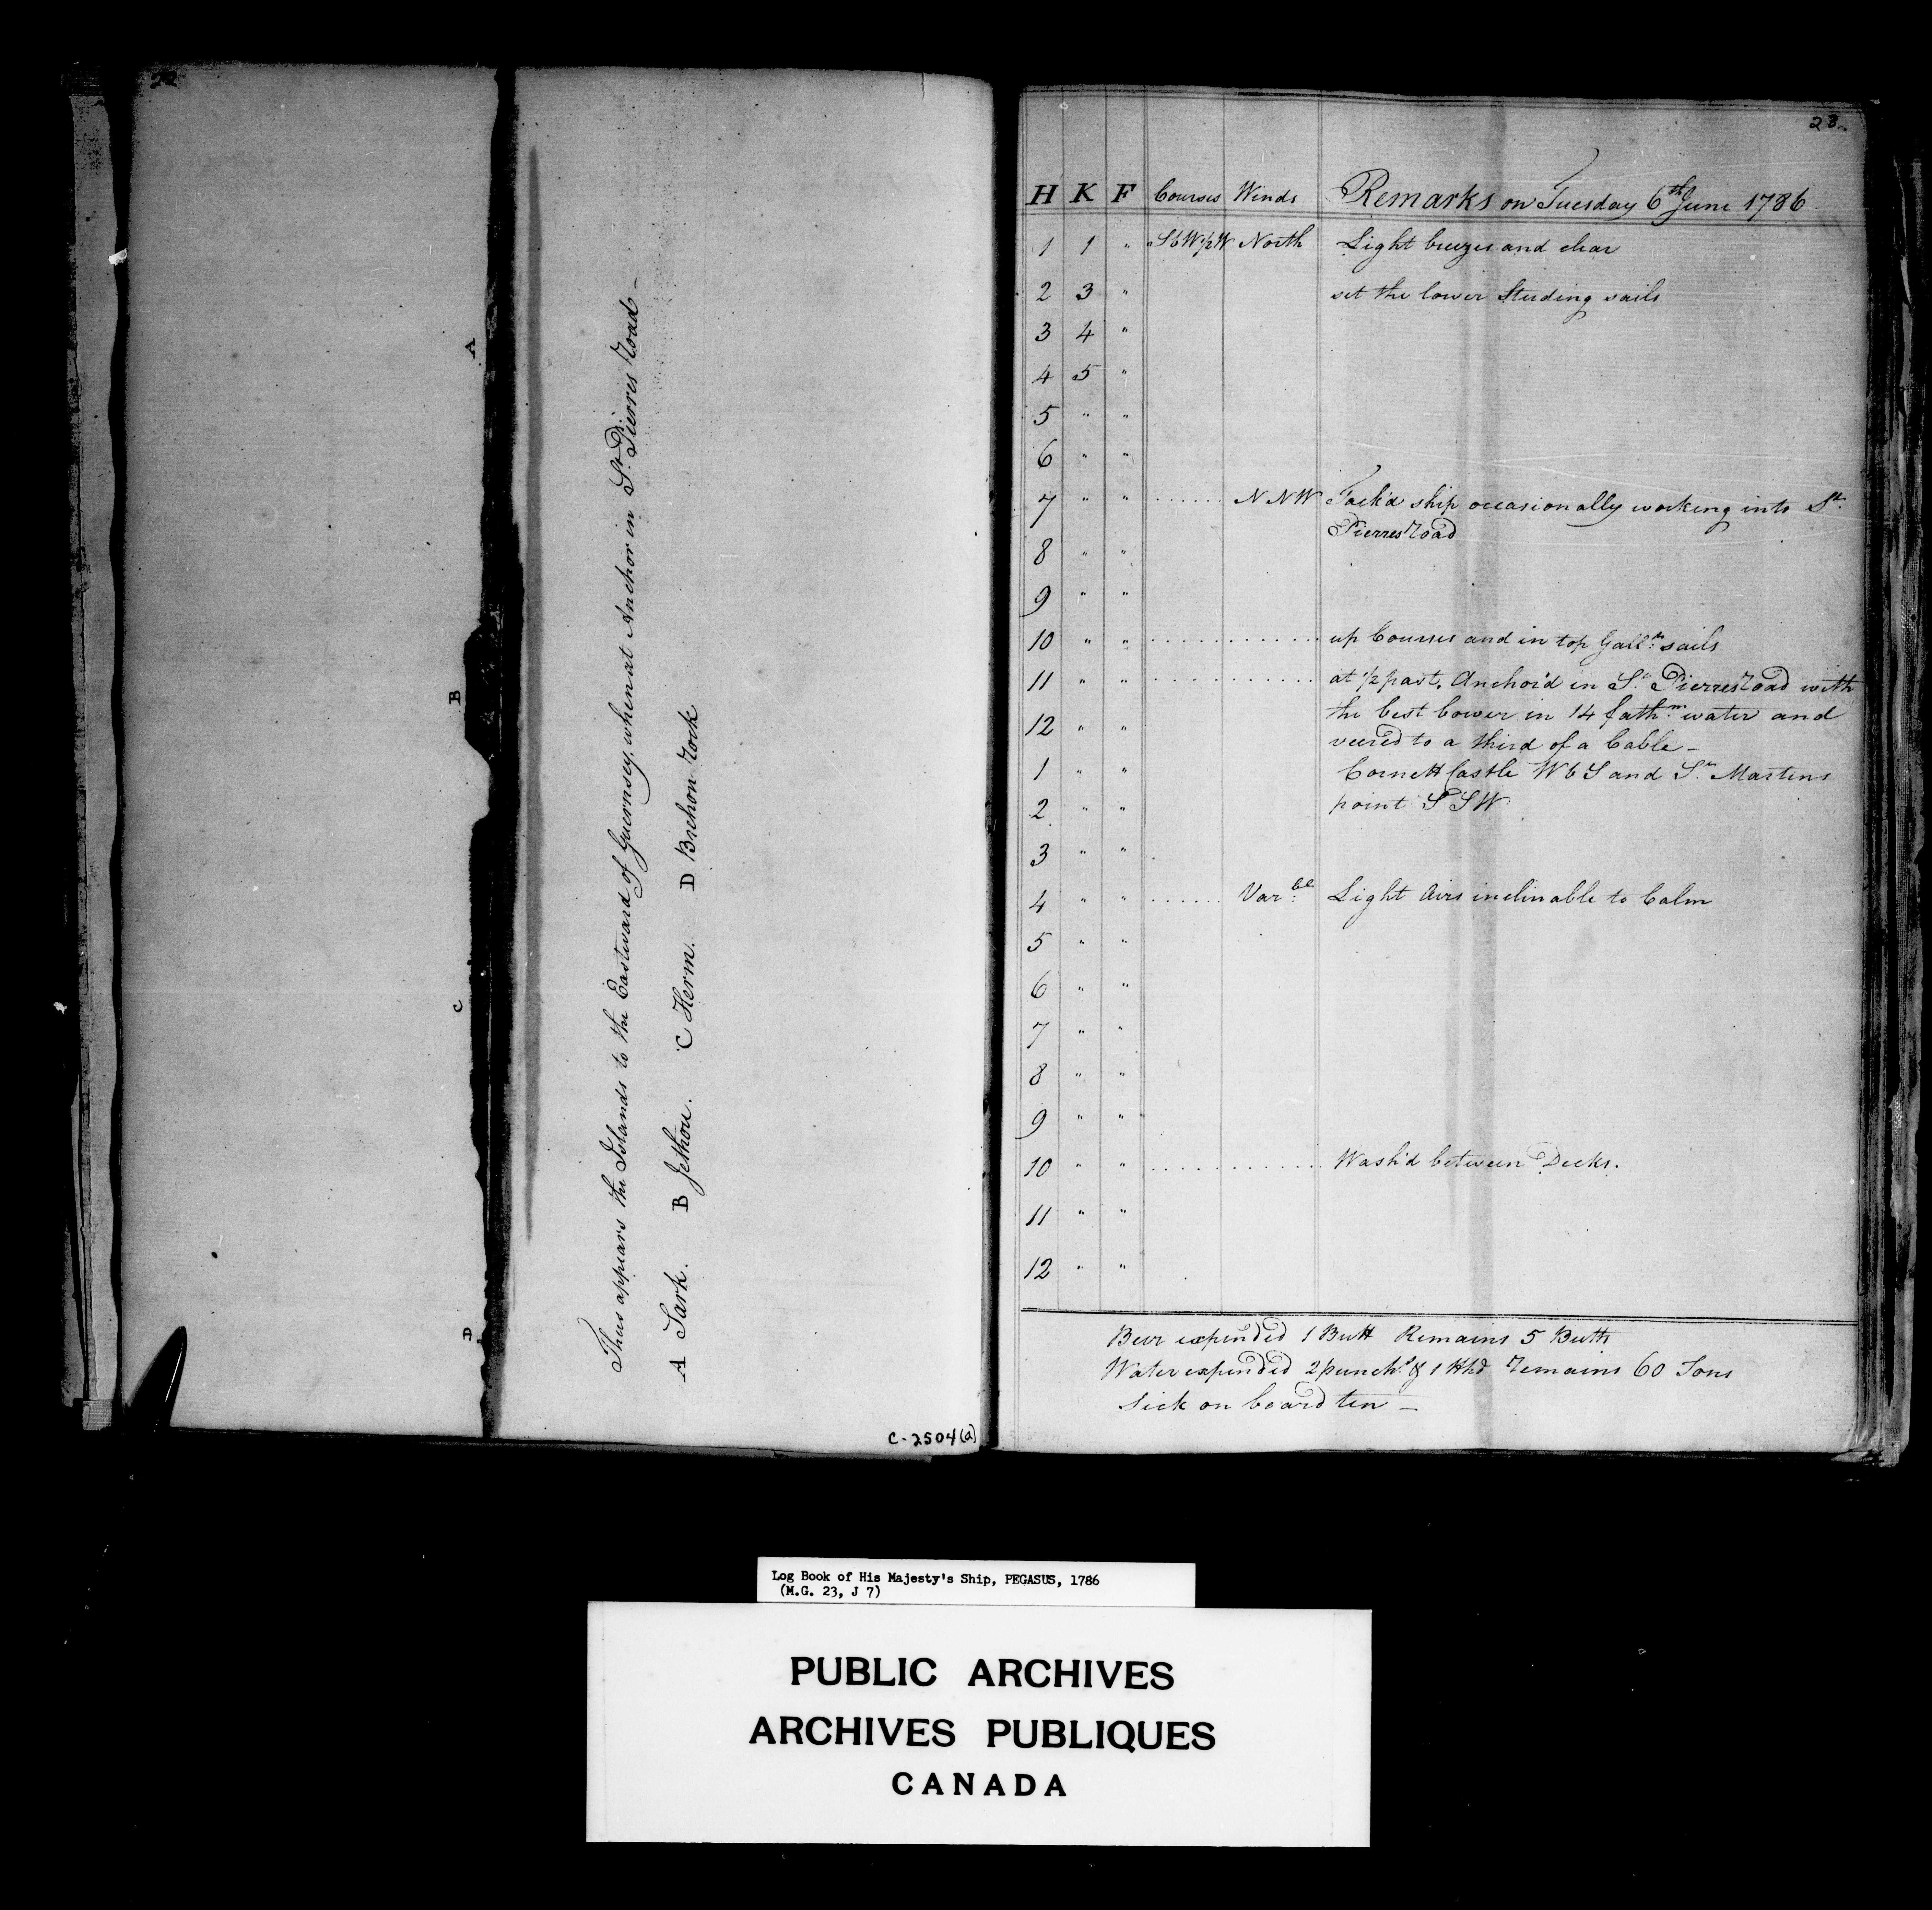 22
A
B
C
D
Thus appears the Islands to the Eastward of Guernsey, when at Anchor in St. Pierres Road –
A Sark. B Jethou. C Herm. D Brehon Rock
C-2504(a)
23
H K F Courses Winds Remarks on Tuesday 6th June 1786
1 1 " SbW½W North Light breezes and clear
2 3 " set the lower Studing sails
3 4 "
4 5 "
5 " "
6 " "
7 " " ...... NNW Tack'd ship occasionally working into St.
Pierres Road
8 " "
9 " "
10 " " ............ up Courses and in top Galln. sails
11 " " ............ at ½ past, Anchor'd in St. Pierres Road with
12 " " the best bower in 14 fathm. water and
veered to a third of a Cable –
1 " " Cornett Castle WbS and St. Martens
2 " " point SSW
3 " "
4 " " ...... Varble. Light Airs inclinable to Calm
5 " "
6 " "
7 " "
8 " "
9 " "
10 " " ............ Wash'd between Decks.
11 " "
12 " "
Beer expended 1 Butt Remains 5 Butts
Water expended 2 punchs. & 1 Hhd Remains 60 Tons
Sick on board ten –
Log Book of His Majesty's Ship, PEGASUS, 1786
(M.G. 23, J 7)
PUBLIC ARCHIVES
ARCHIVES PUBLIQUES
CANADA